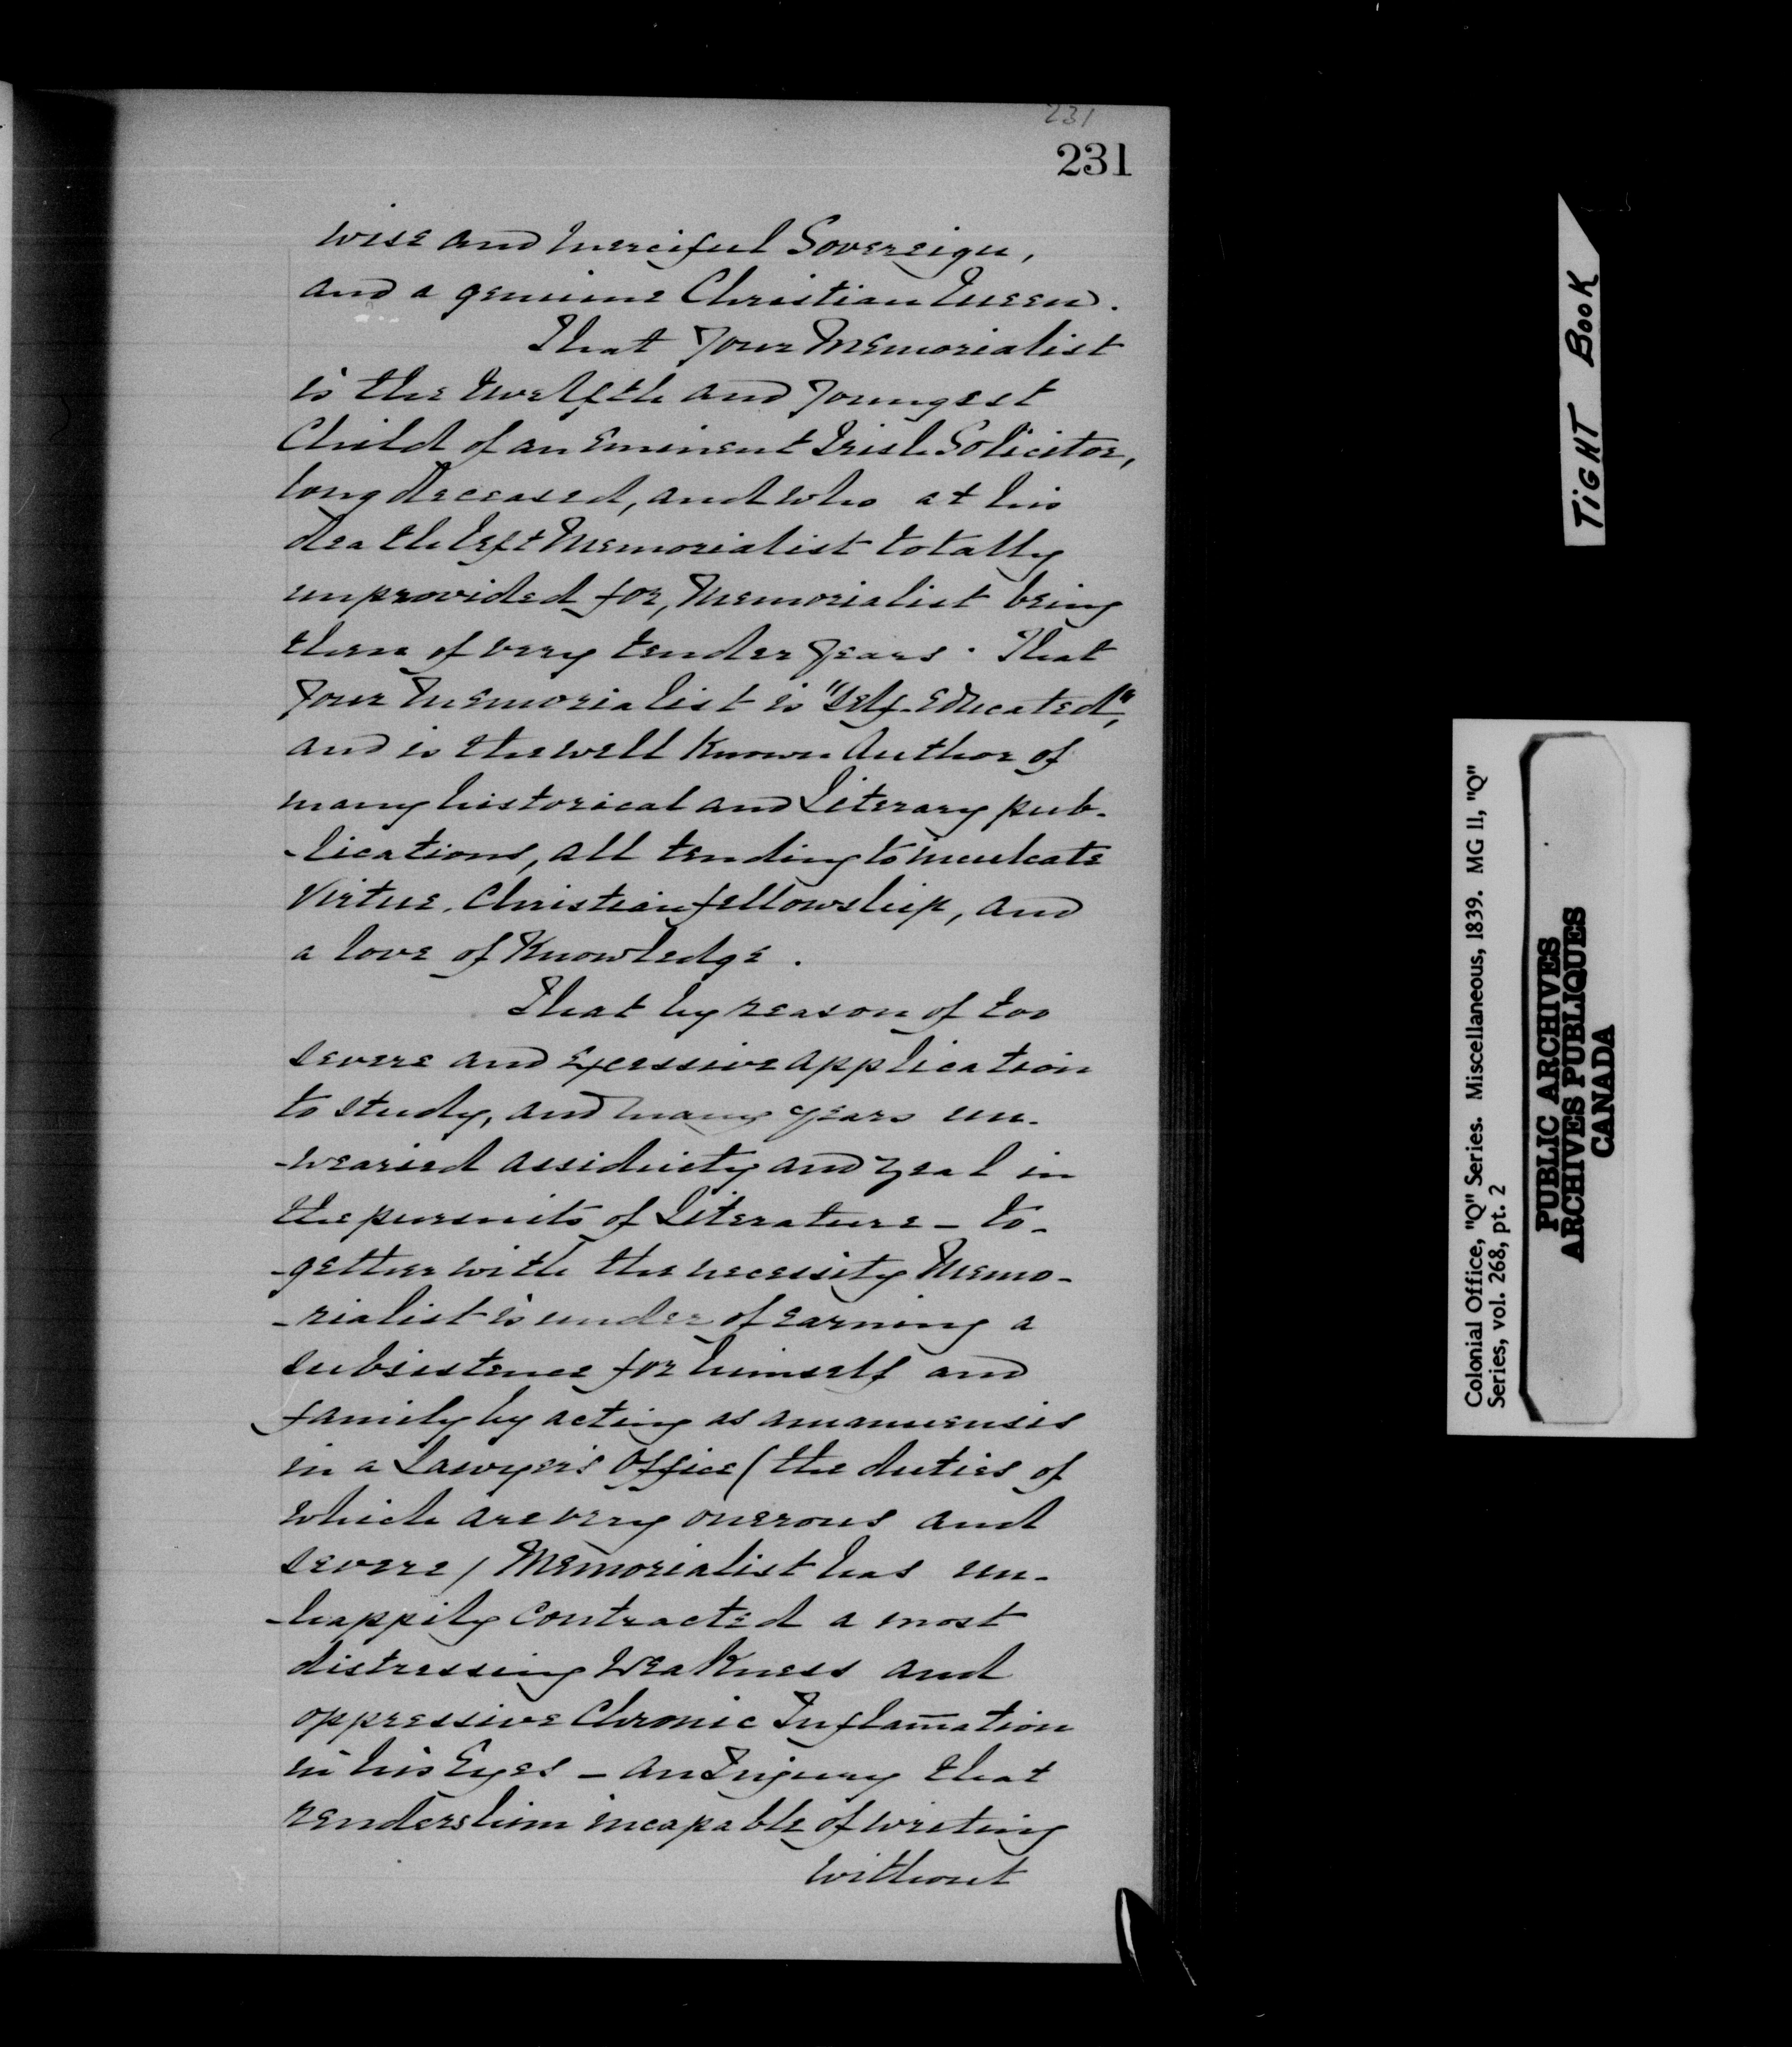 231
231
wise and merciful Sovereign,
and a genuine Christian Queen.
That your Memorialist
is the twelfth and youngest
Child of an Eminent Irish Solicitor,
long deceased, and who at his
death left Memorialist totally
unprovided for, Memorialist being
then of very tender years. That
your Memorialist is "Self-Educated",
and is the well known Author of
many historical and Literary pub-
-lications, all tending to inculcate
Virtue, Christian fellowship, and
a love of Knowledge.
That by reason of too
severe and excessive application
to study, and many years un-
-wearied assiduity and zeal in
the pursuits of Literature - to-
-gether with the necessity Memo-
-rialist is under of earning a
subsistence for himself and
family by acting as amanuensis
in a Lawyer's Office (the duties of
which are very onerous and
severe) Memorialist has un-
-happily contracted a most
distressing Weakness and
oppressive Chronic Inflam̄ation
in his Eyes - an Injury that
renders him incapable of writing
without
TIGHT BOOK
Colonial Office, "Q" Series. Miscellaneous, 1839. MG 11, "Q"
Series, vol. 268, pt. 2
PUBLIC ARCHIVES
ARCHIVES PUBLIQUES
CANADA